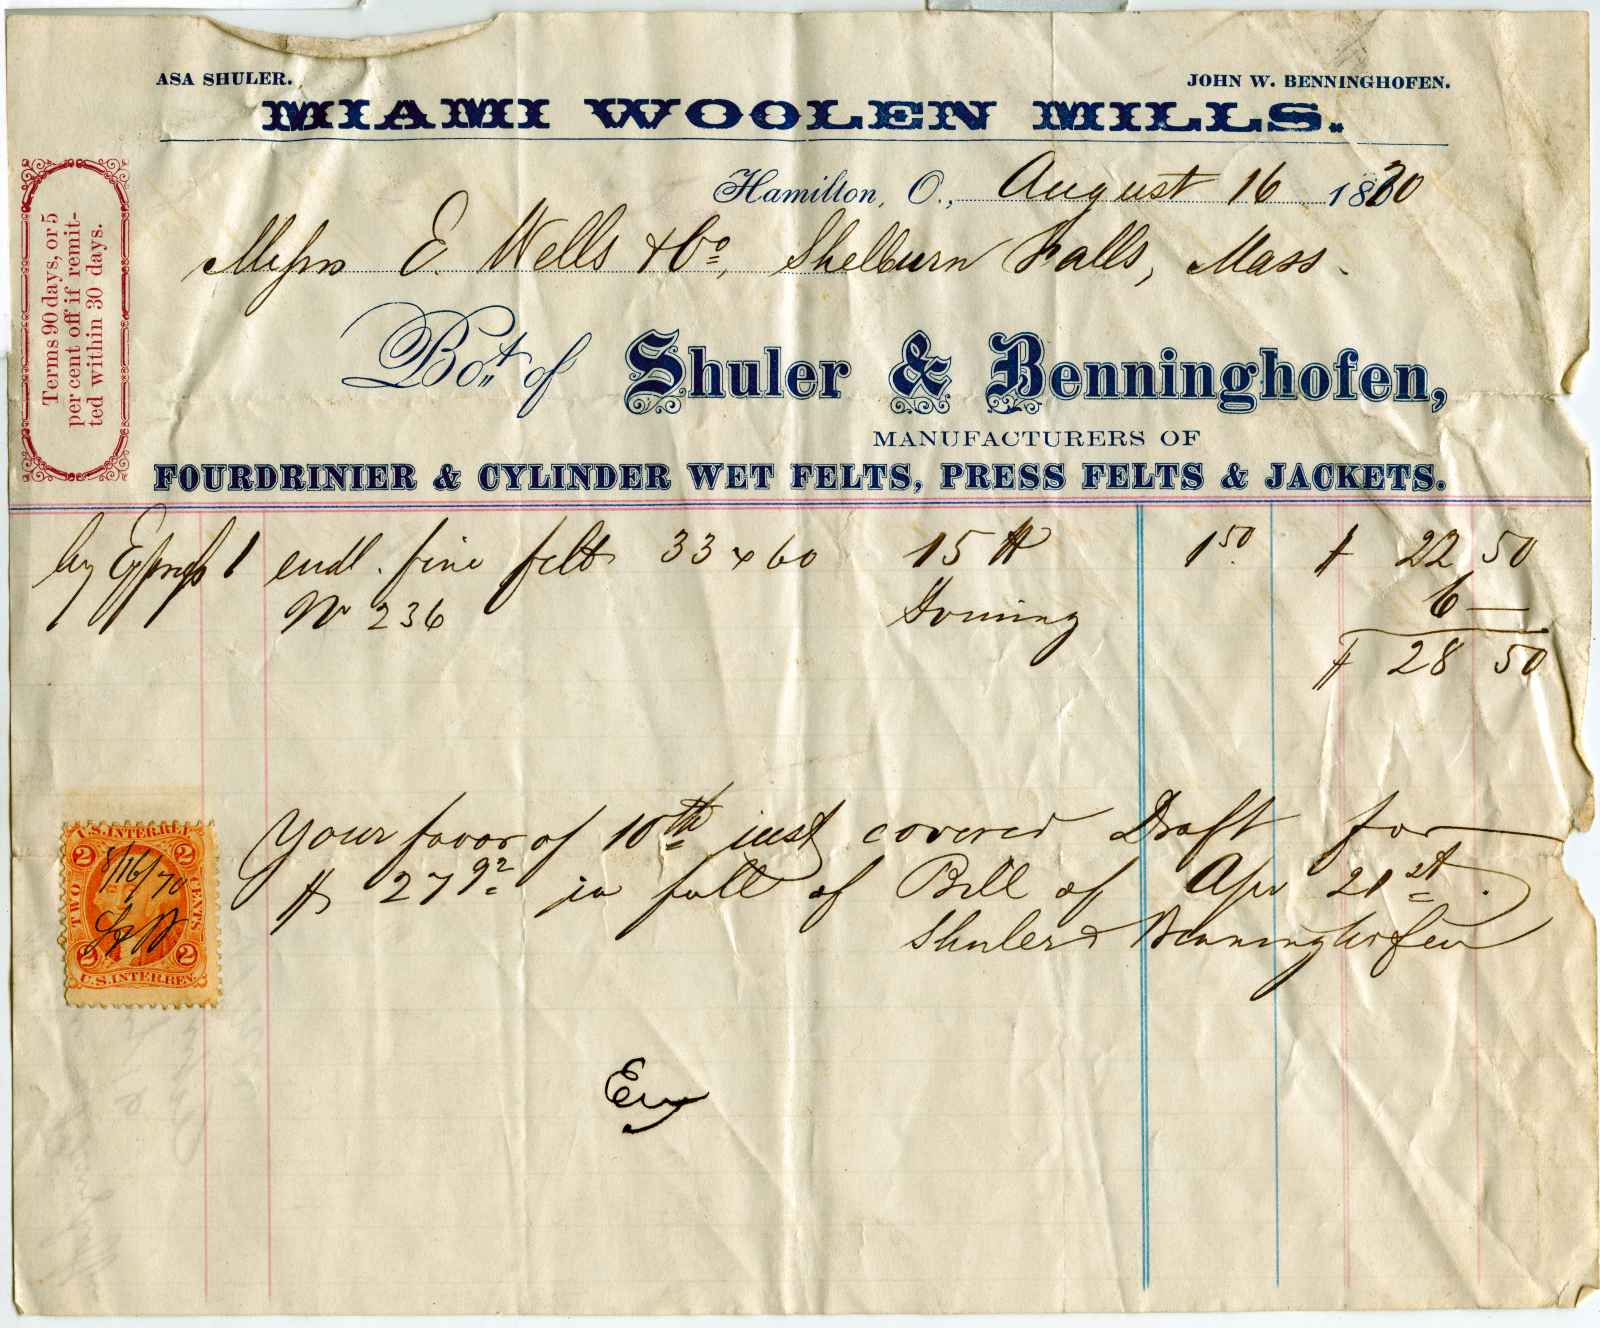 ASA SHULER.
JOHN W. BENNINGHOFEN.
MIAMI WOOLEN MILLS.
Hamilton, O., August 16 1870
Messrs E. Wells & Co, Shelburn Falls, Mass.
Terms 90 days, or 5
per cent off if remit-
ted within 30 days.
Bo't of Shuler & Benninghofen,
MANUFACTURERS OF
FOURDRINIER & CYLINDER WET FELTS, PRESS FELTS & JACKETS.
by Express 1 endl. fine felt 33 x 60 15 # 1.50 $ 22 50
No 236 Joining 6 —
$ 28 50
Your favor of 10th inst covered Draft for
$ 27 92 in full of Bill of Apr 21st.
Shuler & Benninghofen
U.S. INTER. REV.
2 2
8/16/70
TWO CENTS
S & B
2 2
U.S. INTER. REV.